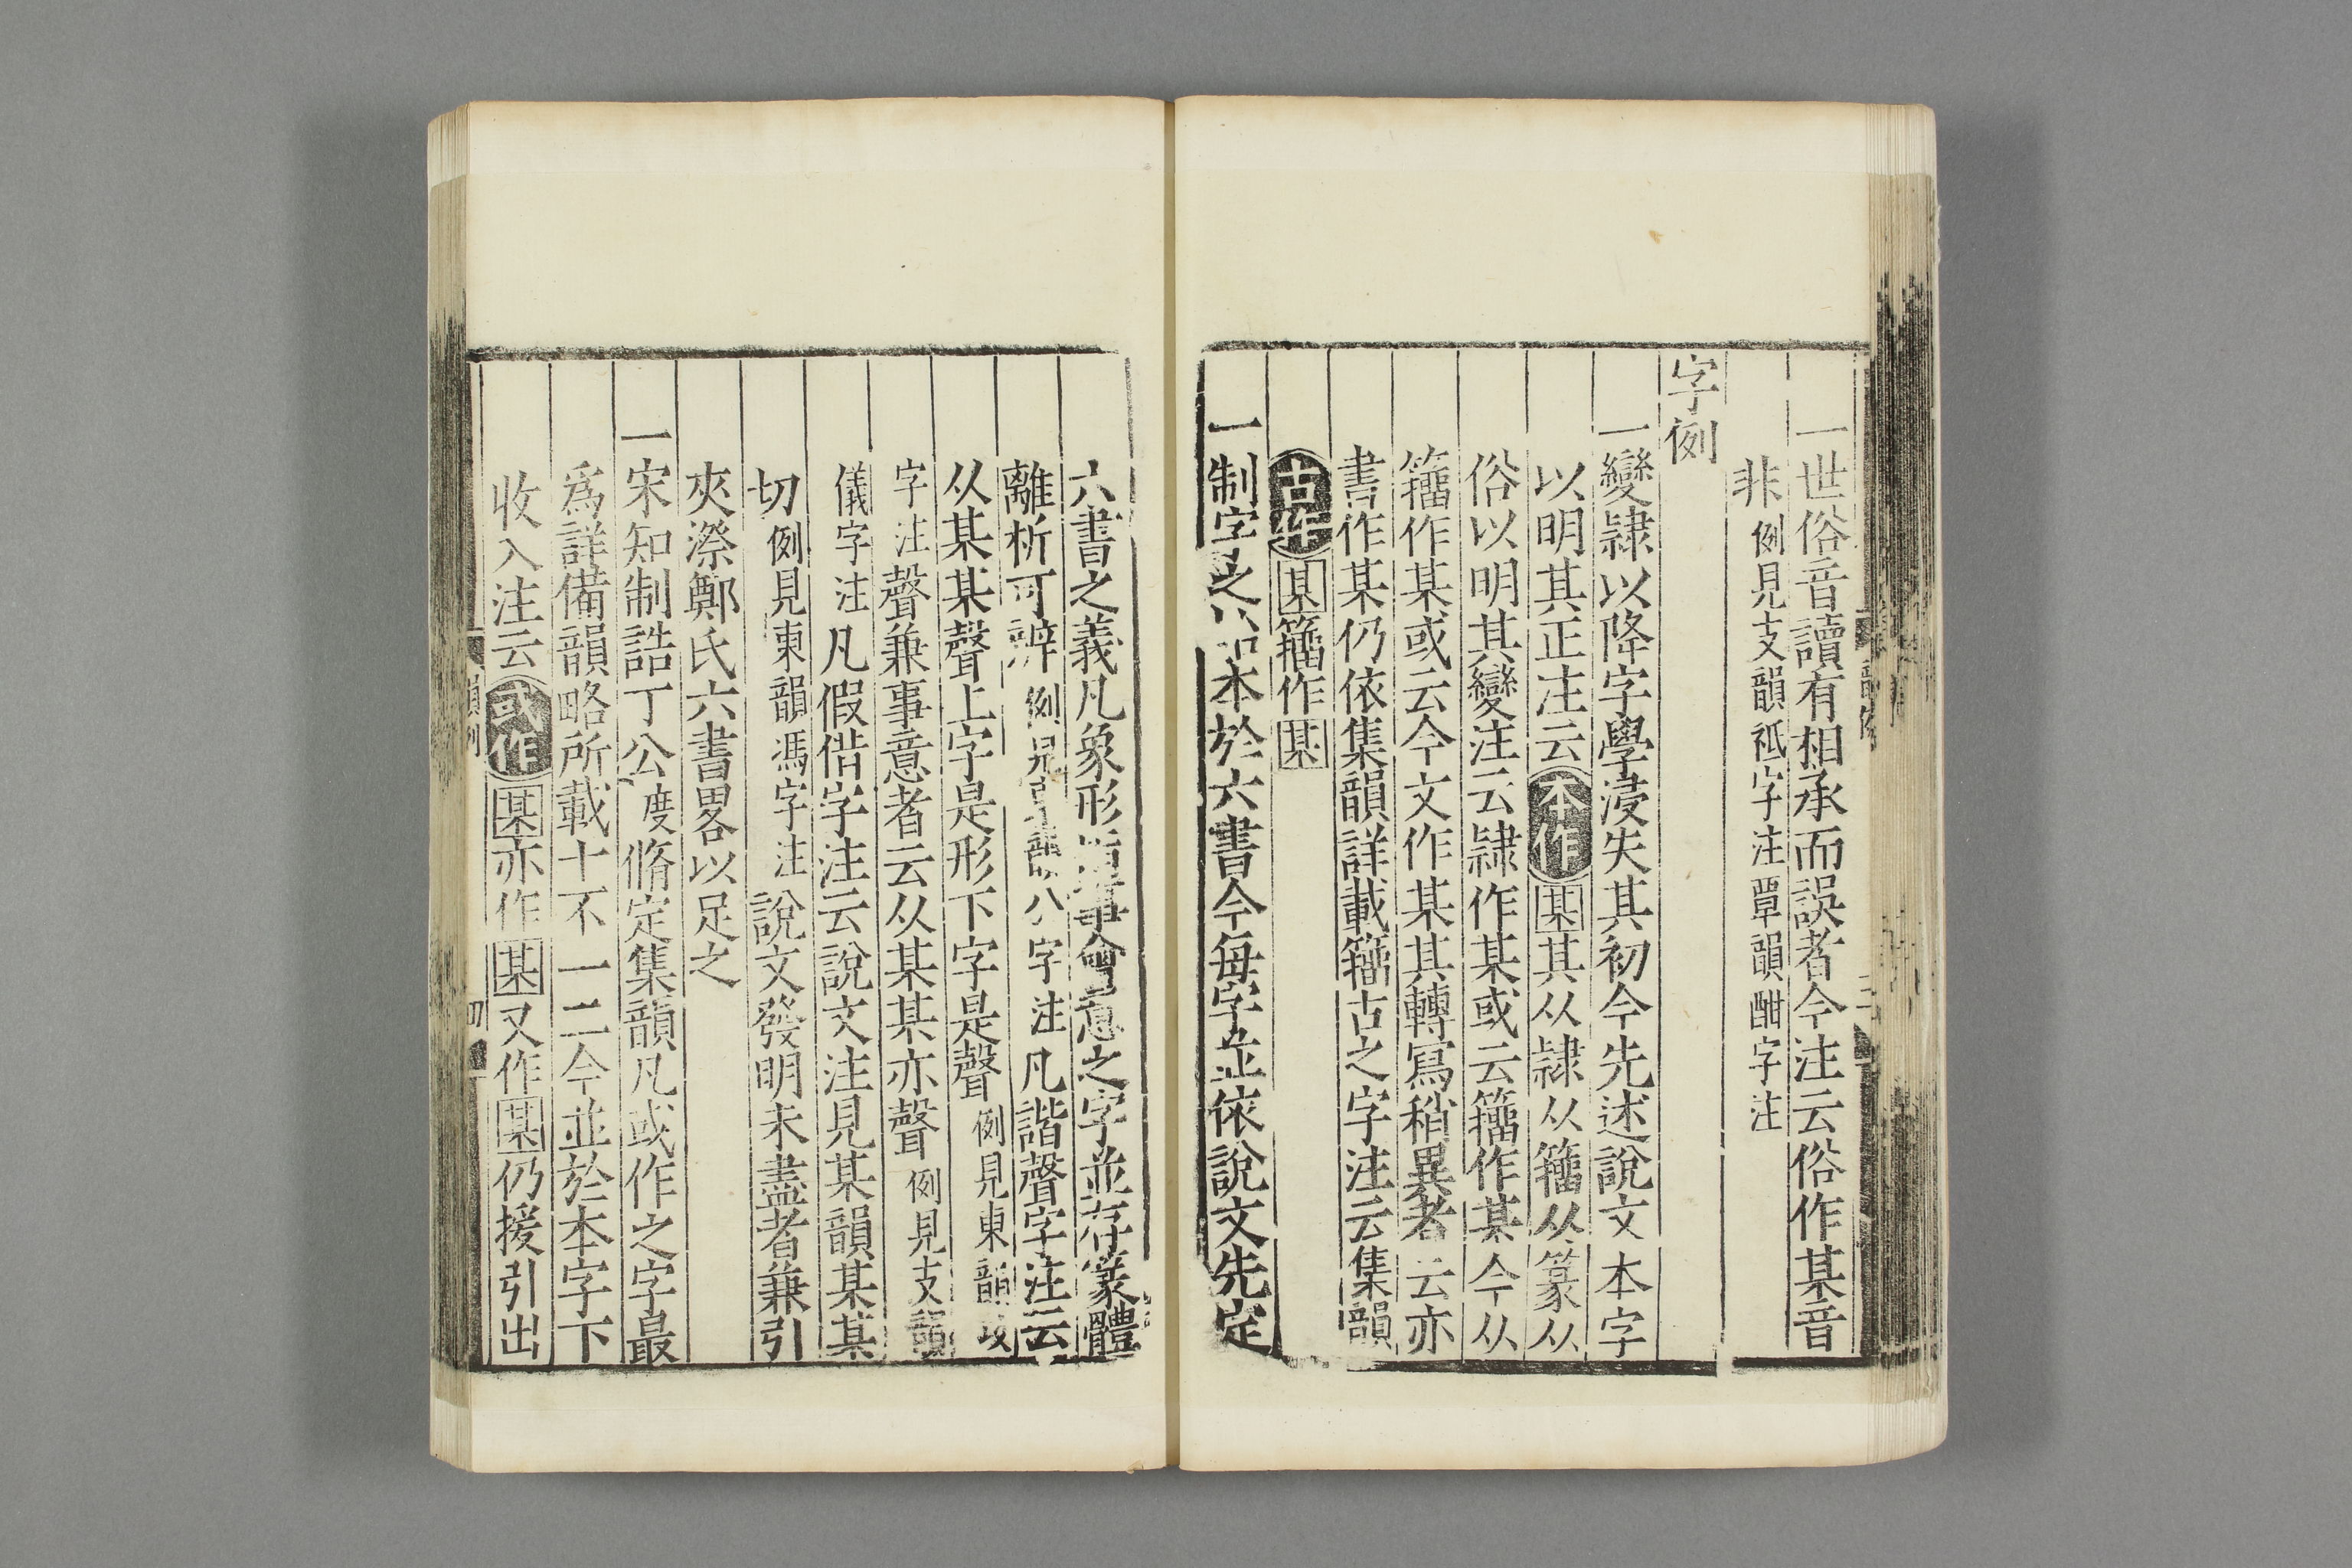 一世俗音讀有相承而誤者今注云俗作某音
非例見支韻祗字注覃韻酣字注
字例
一變隷以降字學浸失其初今先述說文本字
以明其正注云本作某其从隷从籀从篆从
俗以明其變注云隷作某或云籀作某今从
籀作某或云今文作某其轉寫稍異者云亦
書作某仍依集韻詳載籀古之字注云集韻
古作某籀作某
一制字之本於六書今每字並依說文先定
六書之義凡象形指事會意之字並存篆體
離析可辨例見東韻公字注凡諧聲字注云
从某某聲上字是形下字是聲例見東韻
字注聲兼事意者云从某某亦聲例見支韻
儀字注凡假借字注云說文注見某韻某某
切例見東韻馮字注說文發明未盡者兼引
夾漈鄭氏六書畧以足之
一宋知制誥丁公度脩定集韻凡或作之字最
爲詳備韻略所載十不一二今並於本字下
收入注云或作某亦作某又作某仍援引出